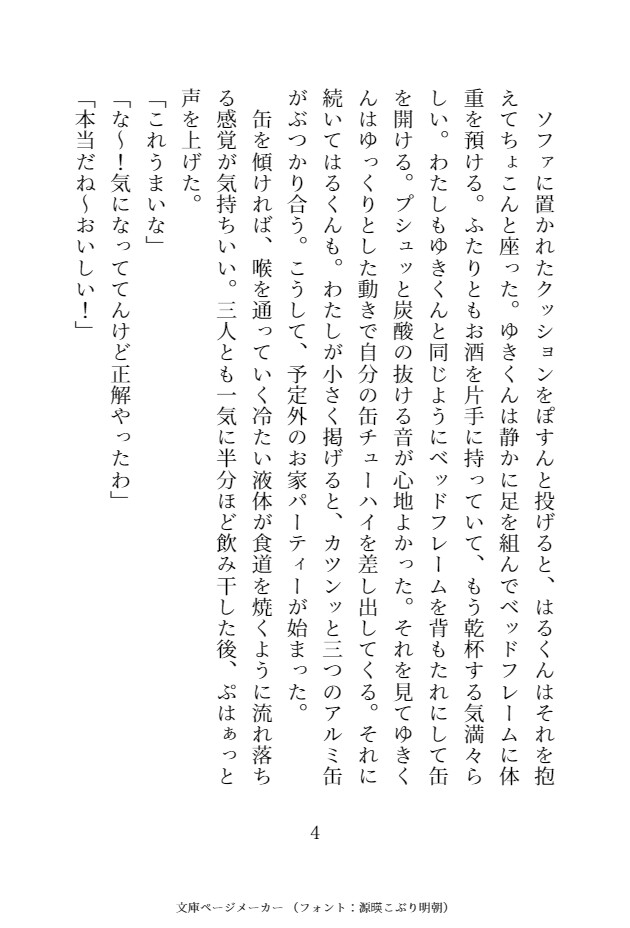 ソファに置かれたクッションをぽすんと投げると、はるくんはそれを抱
えてちょこんと座った。ゆきくんは静かに足を組んでベッドフレームに体
重を預ける。ふたりともお酒を片手に持っていて、もう乾杯する気満々ら
しい。わたしもゆきくんと同じようにベッドフレームを背もたれにして缶
を開ける。プシュッと炭酸の抜ける音が心地よかった。それを見てゆきく
んはゆっくりとした動きで自分の缶チューハイを差し出してくる。それに
続いてはるくんも。わたしが小さく掲げると、カツンッと三つのアルミ缶
がぶつかり合う。こうして、予定外のお家パーティーが始まった。
缶を傾ければ、喉を通っていく冷たい液体が食道を焼くように流れ落ち
る感覚が気持ちいい。三人とも一気に半分ほど飲み干した後、ぷはぁっと
声を上げた。
「これうまいな」
「な〜！気になっててんけど正解やったわ」
「本当だね〜おいしい！」
4
文庫ページメーカー（フォント：源暎こぶり明朝）